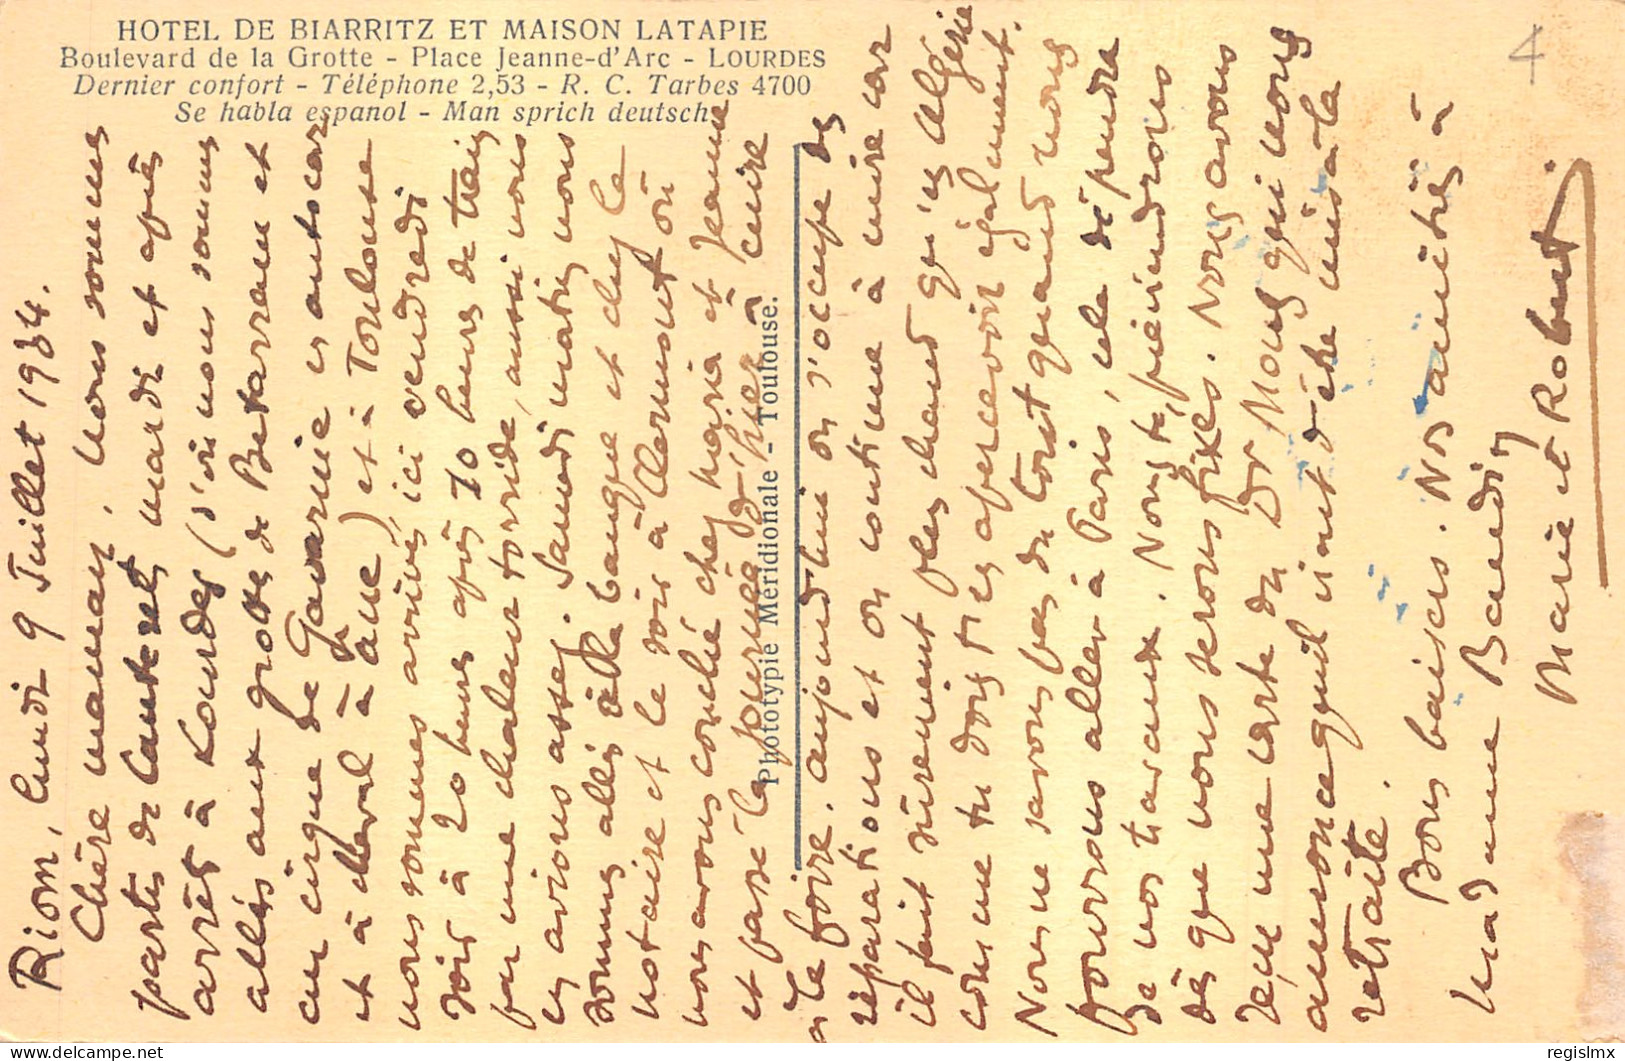 HOTEL DE BIARRITZ ET MAISON LATAPIE
Boulevard de la Grotte - Place Jeanne-d'Arc - LOURDES
Dernier confort - Téléphone 2,53 - R. C. Tarbes 4700
Se habla espanol - Man sprich deutsch
4
Riom, Lundi 9 Juillet 1934.
Chère maman, Nous sommes
partis de Cauterets mardi et après
arrêt à Lourdes (d'où nous sommes
allés aux grottes de Betarram et
au cirque de Gavarnie en autocar
et à à âne) et à Toulouse
nous sommes arrivés ici vendredi
soir à 20 heures après 10 heures de train
par une chaleur torride, aussi nous
en avions assez. Samedi matin nous
sommes allés à la banque et chez le
notaire et le soir à Clermont où
nous avons couché chez maria et Jeanne
et passé la journée d'hier à cuire
à la foire. aujourd'hui on s'occupe des
réparations et on continue à cuire car
il fait sûrement plus chaud qu'en Algérie
comme tu dois t'en apercevoir également.
Nous ne savons pas du tout quand nous
pourrons aller à Paris, cela dépendra
de nos travaux. Nous te préviendrons
dès que nous serons fixés. Nous avons
reçu une carte du Dr Mons qui nous
annonce qu'il vient d'être mis à la
retraite.
Bons baisers. Nos amitiés à
Madame Baudin
Marie et Robert.
Phototypie Méridionale - Toulouse.
regislmx